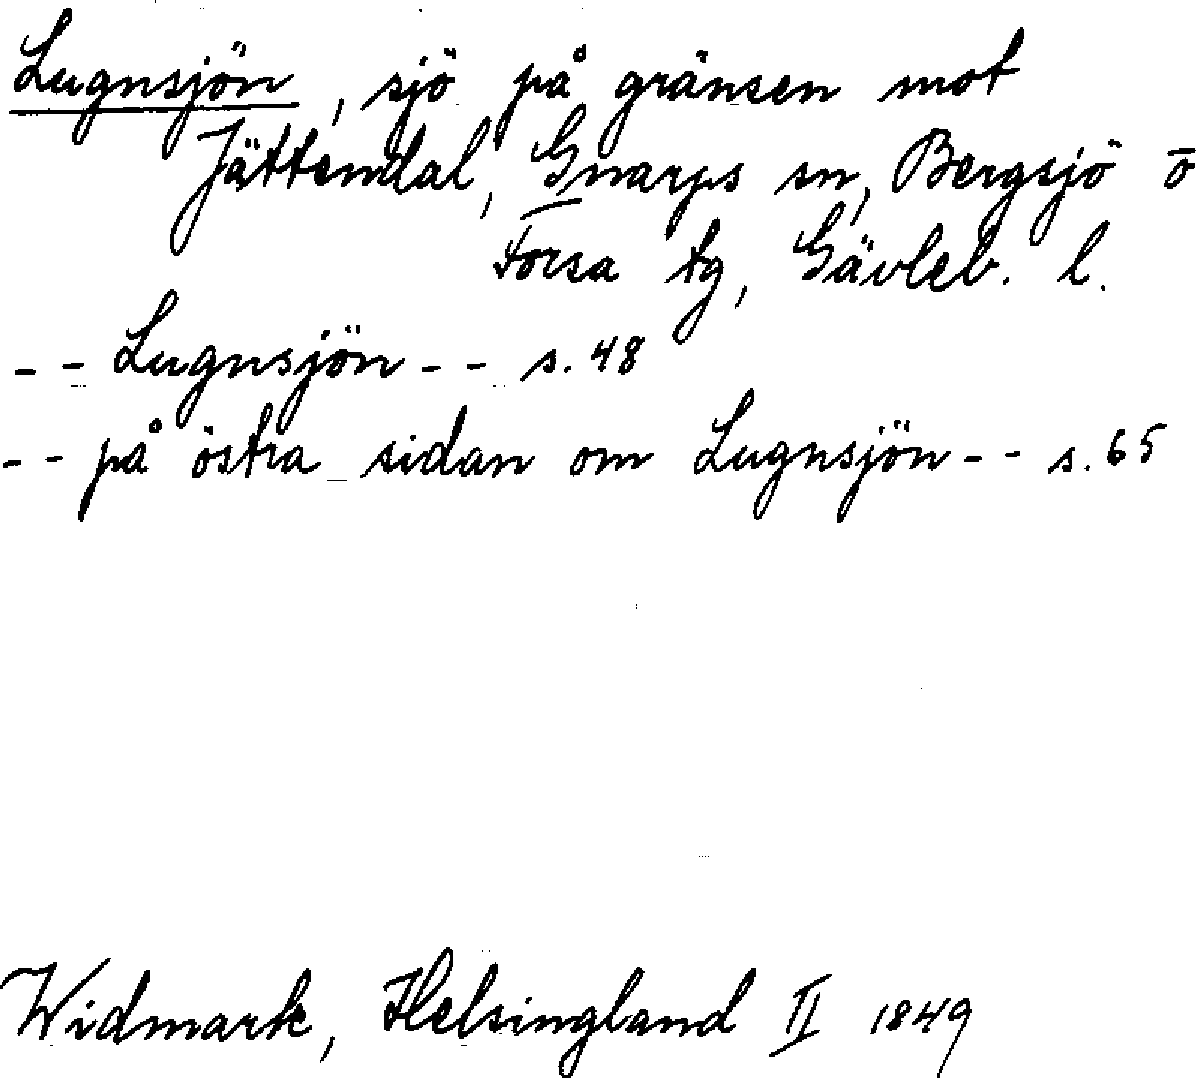 Lugnsjön, sjö på gränsen mot
Jättendal, Gnarps sn, Bergsjö o
Forsa tg, Gävleb. l.
-- Lugnsjön -- s. 48
-- på östra sidan om Lugnsjön -- s. 65
Widmark, Helsingland II 1849